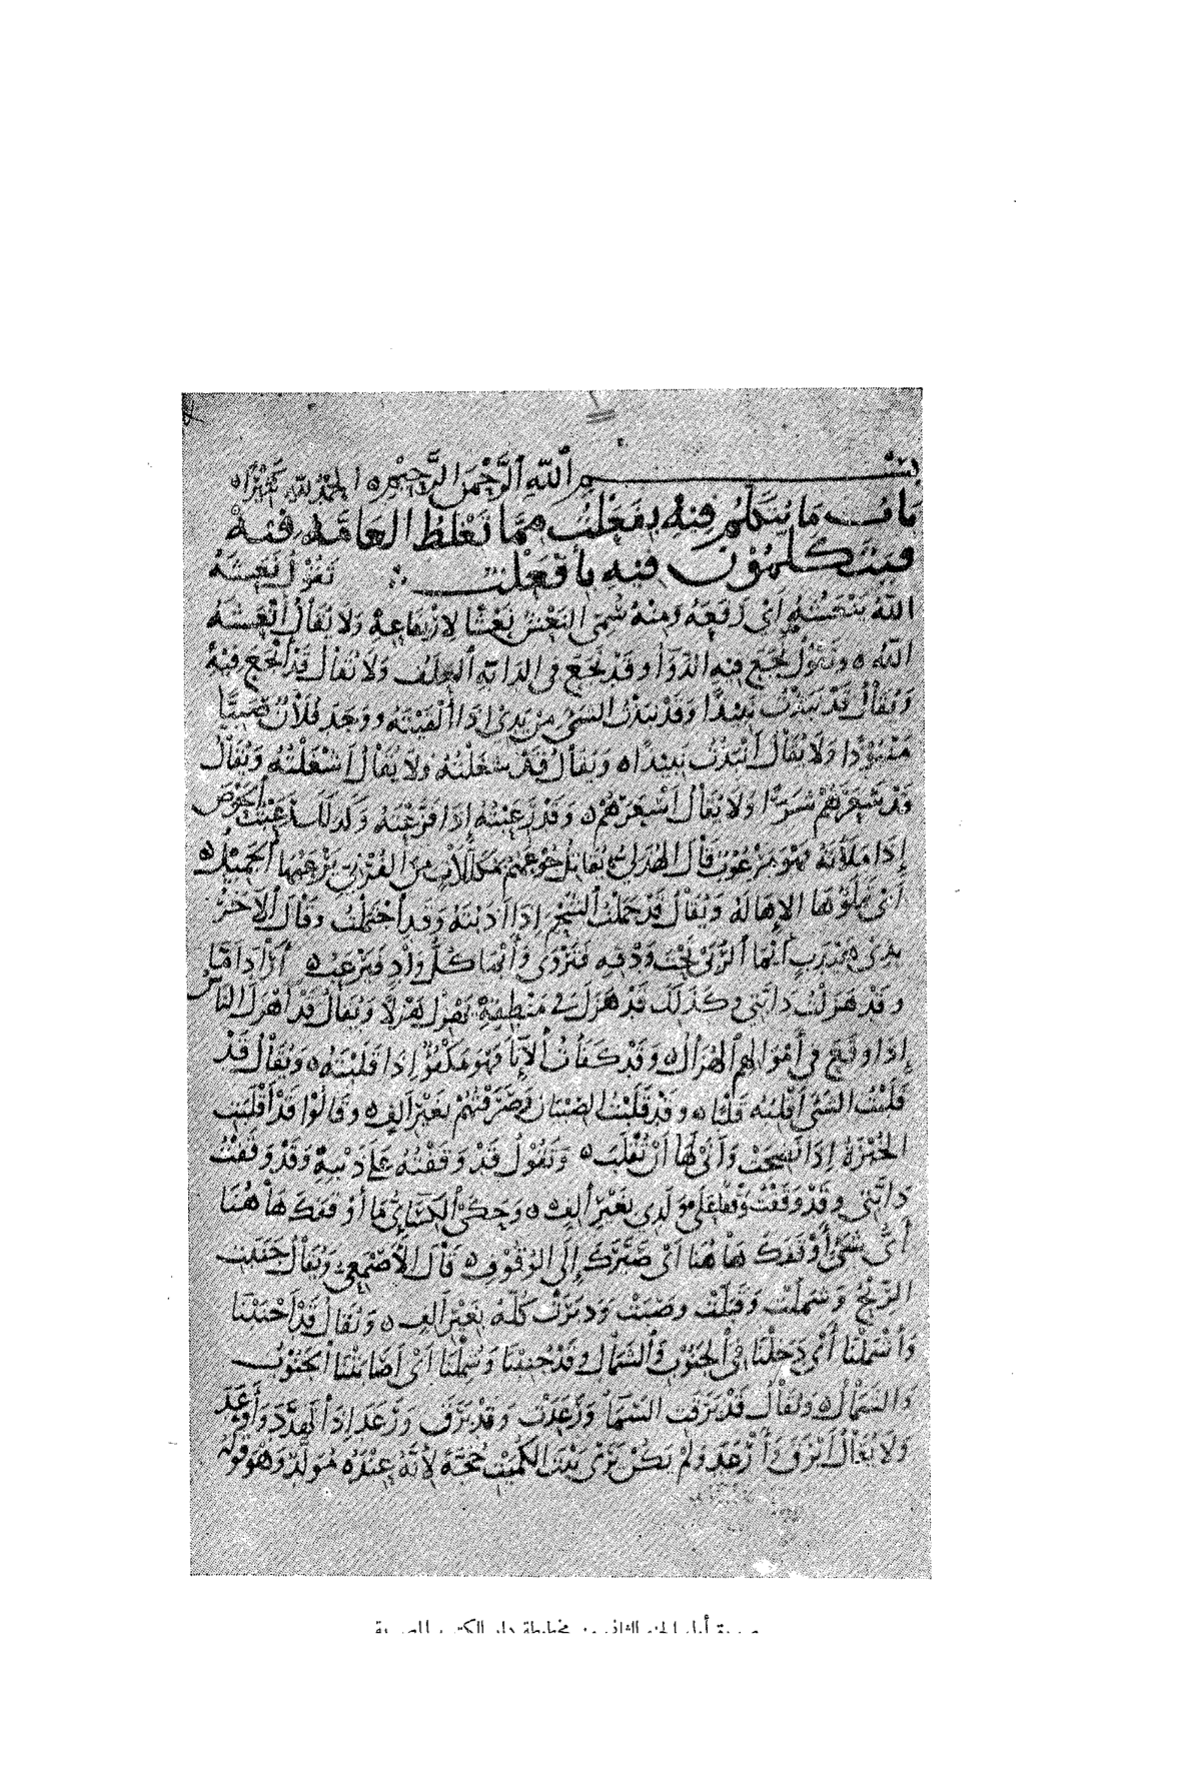 بسم الله الرحمن الرحيم ه الحمد لله كثيرا ه
باب ما يتكلم فيه بفعلت مما تغلط العامة فيه
فيتكلمون فيه بأفعلت ∴ تقول نعشه
الله ينعشه أي رفعه ومنه سمي النعش نعشا لارتفاعه ولا يقال أنعشه
الله ه وتقول نجع فيه الدواء وقد نجع في الدابة العلف ولا يقال قد أنجع فيه
ويقال قد نبذت نبيذا وقد نبذت الشيء من يدي إذا ألقيته ووجد فلان صبيا
منبوذا ولا يقال أنبذت نبيذا ه ويقال قد شغلته ولا يقال أشغلته ويقال
قد شعرهم شرا ولا يقال أسعرهم ه وقد رعبته إذا فزعته وكذلك رعبت الحوض
إذا ملأته فهو مرعوب قال الهذلي نقاتل جوعهم بمكللات من الفرني يرعبها الجميل ه
أي تملؤها الإهالة ويقال قد جملت الشحم إذا أذبته وقد اجتملت وقال الآخر
بذي هيدب أيما الربى تحت ودقه فتروى وأيما كل واد فيرعب ه أراد أما
وقد هزلت دابتي وكذلك قد هزل في منطقه يهزل هزلا ويقال قد أهزل الناس
إذا وقع في أموالهم الهزال ه وقد كفأت الإناء فهو مكفوء إذا قلبته ه ويقال قد
قلبت الشيء أقلبه قلبا ه وقد قلبت الصبيان وصرفتهم بغير ألف ه وقالوا قد أقلبت
الخبزة إذا نضجت وأنى لها أن تقلب ه وتقول قد وقفته على ذنبه وقد وقفت
دابتي وقد وقفت وقفا على ولدي بغير ألف ه وحكى الكسائي ما أوقفك ها هنا
أي شيء أوقفك ها هنا أي صيرك إلى الوقوف ه قال الأصمعي ويقال جنبت
الريح وشملت وقبلت وصبت ودبرت كله بغير ألف ه ويقال قد أجنبنا
وأشملنا أي دخلنا في الجنوب والشمال وقد جنبنا وشملنا أي أصابتنا الجنوب
والشمال ه ويقال قد برقت السماء ورعدت وقد برق ورعد إذا تهدد وأوعد
ولا يقال أبرق وأرعد ولم يكن يرى بيت الكميت حجة لأنه عنده مولد وهو قوله
صورة أول الجزء الثاني من مخطوطة دار الكتب المصرية